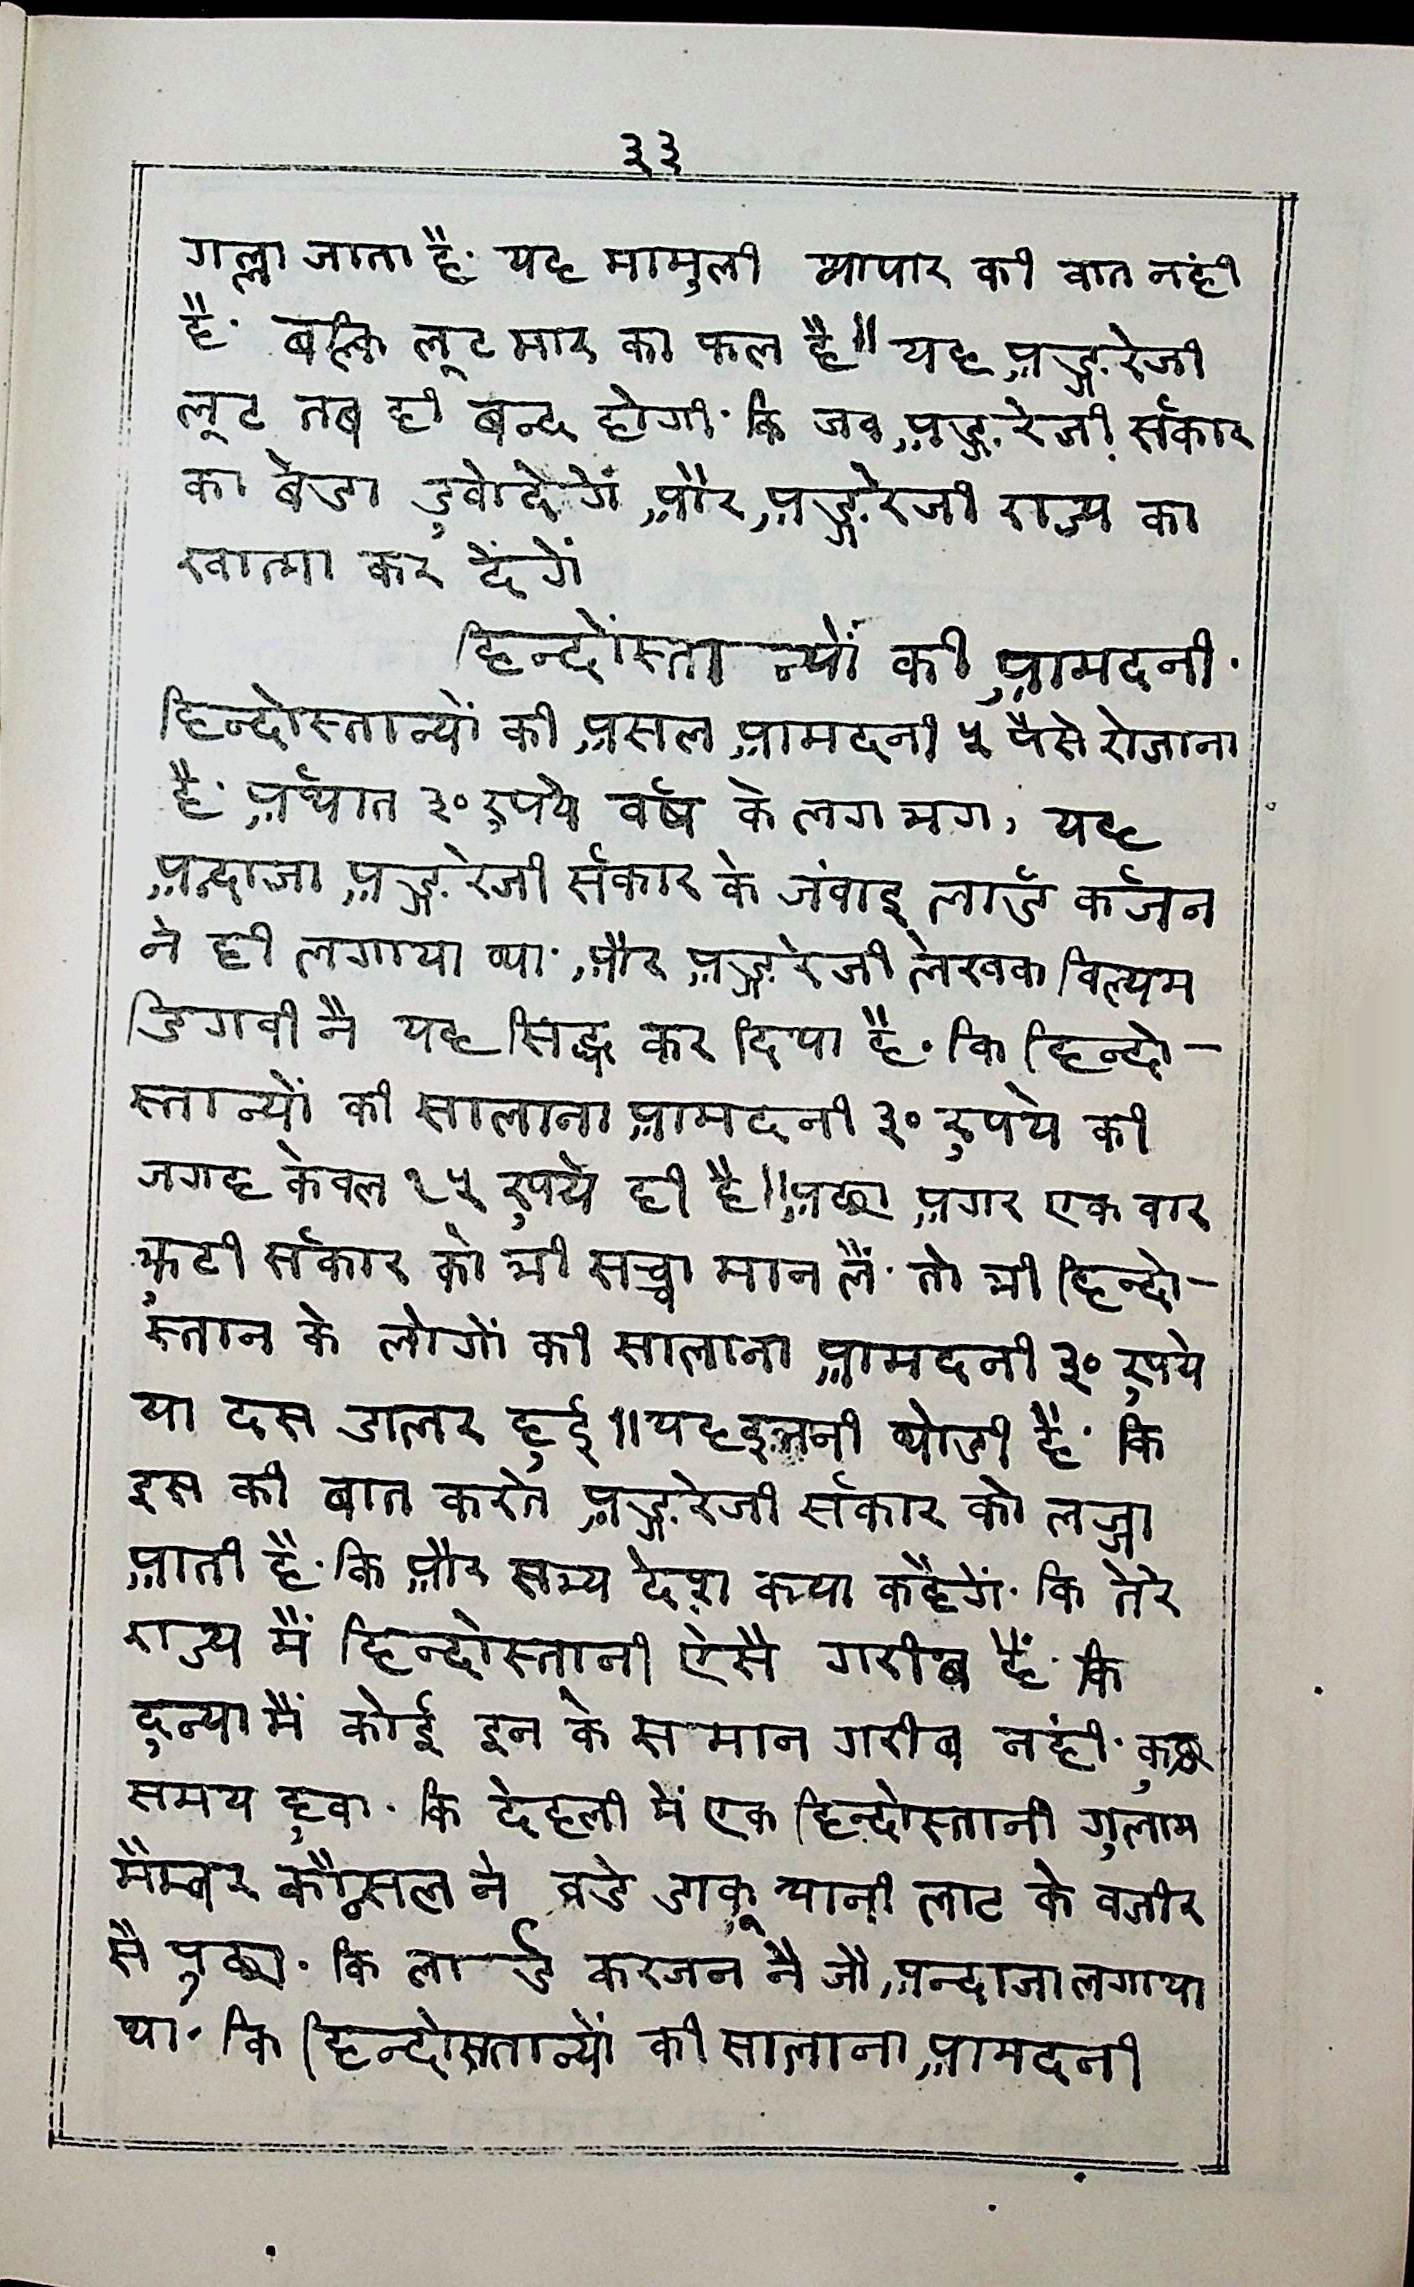 ३३
गल्ला जाता है· यह मामुली व्यापार की वात नंही
है· बल्कि लूट मार का फल है॥ यह अङ्गरेजी
लूट तब ही बन्द होगी· कि जव अङ्गरेजी र्सकार
का बेडा डुवोदेगें और अङ्गरेजी राज्य का
खात्मा कर देंगें
हिन्दोंस्तान्यों की आमदनी·
हिन्दोस्तान्यों की असल आमदनी ५ पैसे रोजाना
है· अर्थात ३० रुपये वर्ष के लगभग, यह
अन्दाजा अङ्गरेजी र्सकार के जंवाइ लार्ड कर्जन
ने ही लगाया था· और अङ्गरेजी लेखक विल्यम
डिगवी नै यह सिद्ध कर दिया है· कि हिन्दो-
स्तान्यों की सालाना आमदनी ३० रुपये की
जगह केवल १५ रुपये ही है॥ अछा अगर एक वार
झुटी र्सकार को भी सच्चा मान लैं· तो भी हिन्दो-
स्तान के लोगों की सालाना आमदनी ३० रुपये
या दस डालर हुई॥ यह इतनी थोडी है· कि
इस की बात करते अङ्गरेजी र्सकार को लज्जा
आती है· कि और सभ्य देश क्या कहैगें· कि तेरे
राज्य मैं हिन्दोस्तानी ऐसै गरीब हैं· कि
दुन्या मैं कोई इन के समान गरीब नंही· कुछ
समय हुवा· कि देहली में एक हिन्दोस्तानी गुलाम
मैम्बर कौन्सल ने वडे डाकू यानी लाट के वजीर
सै पुछा· कि लार्ड करजन नै जौ अन्दाजा लगाया
था· कि हिन्दोस्तान्यों की सालाना आमदनी